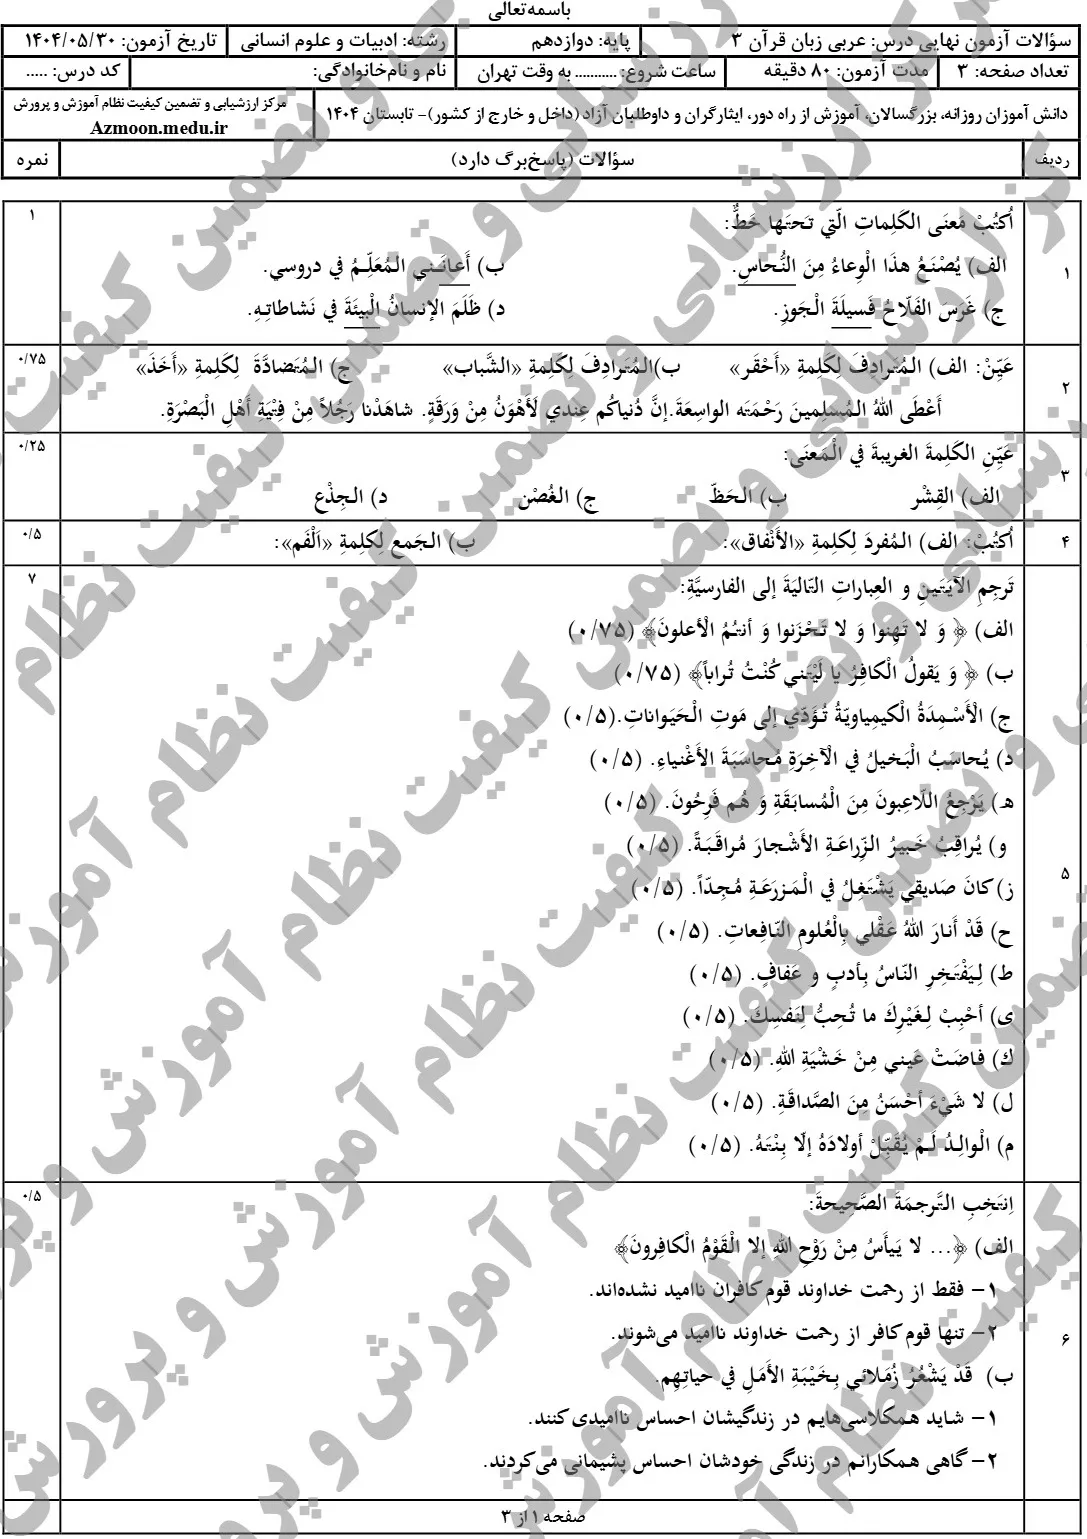 باسمه‌تعالی
سؤالات آزمون نهایی درس: عربی زبان قرآن ۳ پایه: دوازدهم رشته: ادبیات و علوم انسانی تاریخ آزمون: ۱۴۰۴/۰۵/۳۰
تعداد صفحه: ۳ مدت آزمون: ۸۰ دقیقه ساعت شروع: ........... به وقت تهران نام و نام‌خانوادگی: کد درس: .....
دانش آموزان روزانه، بزرگسالان، آموزش از راه دور، ایثارگران و داوطلبان آزاد (داخل و خارج از کشور)- تابستان ۱۴۰۴ مرکز ارزشیابی و تضمین کیفیت نظام آموزش و پرورش
Azmoon.medu.ir
ردیف سؤالات (پاسخ‌برگ دارد) نمره
۱ اُکتُبْ مَعنَی الکَلِماتِ الّتي تَحتَها خَطٌّ: ۱
الف) یُصْنَعُ هذَا الْوِعاءُ مِنَ النُّحاسِ. ب) أَعانَـني المُعَلِّـمُ في دروسي.
ج) غَرَسَ الفَلّاحُ فَسیلَةَ الْجَوزِ. د) ظَلَمَ الإنسانُ الْبیئَةَ في نَشاطاتِـهِ.
۲ عَیِّنْ: الف) المُتَرادِفَ لِکَلِمةِ «أَحْقَر» ب)المُتَرادِفَ لِکَلِمَةِ «الشَّباب» ج) المُتَضادَّةَ لِکَلِمَةِ «أَخَذَ» ۰/۷۵
أَعْطَی اللهُ المُسلِمینَ رَحْمَتَه الواسِعَةَ.إنَّ دُنیاکُم عِندي لَأَهْوَنُ مِنْ وَرَقَةٍ. شاهَدْنا رَجُلاً مِنْ فِتْیَةِ أَهْلِ الْبَصْرَةِ.
۳ عَیِّنِ الکَلِمةَ الغریبةَ في الْمَعنَی: ۰/۲۵
الف) القِشْر ب) الـحَظّ ج) الغُصْن د) الـجِذْع
۴ اُکتُبْ: الف) المُفردَ لِکلِمةِ «الأَنْفاق»: ب) الـجَمع لِکلِمةِ «اَلْفَم»: ۰/۵
تَرجِمِ الآیَتَینِ و العِباراتِ التّالیَةَ إلی الفارسیَّةِ: ۷
الف) ﴿ وَ لا تَهِنوا وَ لا تَـحْزَنوا وَ أنتُمُ الْأعلونَ﴾ (۰/۷۵)
ب) ﴿ وَ یَقولُ الْکافِرُ یا لَیْتَني کُنْتُ تُراباً﴾ (۰/۷۵)
ج) الْأَسْـمِدَةُ الْکیمِیاویّةُ تُؤَدّي إلی مَوتِ الْـحَیَواناتِ.(۰/۵)
د) یُحاسَبُ الْبَخیلُ في الْآخِرَةِ مُحاسَبَةَ الأَغْنیاءِ. (۰/۵)
هـ) یَرْجِعُ اللّاعِبونَ مِنَ الْمُسابَقَةِ وَ هُم فَرِحُونَ. (۰/۵)
و) یُراقِبُ خَبیرُ الزِّراعَـةِ الأَشْجارَ مُراقَبَـةً. (۰/۵)
۵ ز) کانَ صَدیقي یَشْتَغِلُ في الْمَـزرَعَـةِ مُـجِدّاً. (۰/۵)
ح) قَدْ أَنـارَ اللهُ عَقْلي بِالْعُلومِ النّـافِعاتِ. (۰/۵)
ط) لِـیَفْتَـخِرِ النّـاسُ بِأدبٍ و عَفافٍ. (۰/۵)
ی) أحْبِبْ لِـغَیْرِكَ ما تُـحِبُّ لِنَفسِكَ. (۰/۵)
ك) فـاضَـتْ عَیني مِنْ خَـشْیَةِ اللهِ. (۰/۵)
ل) لا شَيْءَ أحْسَنُ مِنَ الصَّداقَةِ. (۰/۵)
م) الْوالِـدُ لَـمْ یُقَبِّـلْ أولادَهُ إلّا بِنْتَهُ. (۰/۵)
اِنتَخِبِ التَّرجمَةَ الصَّحِیحةَ: ۰/۵
الف) ﴿... لا یَیأَسُ مِـنْ رَوْحِ اللهِ إلا الْقَوْمُ الْکافِرونَ﴾
۱- فقط از رحمت خداوند قوم کافران ناامید نشده‌اند.
۶ ۲- تنها قوم کافر از رحمت خداوند ناامید می‌شوند.
ب) قَدْ یَشْعُرُ زُمَلائي بِـخَیْبَةِ الأَمَلِ في حیاتِـهِم.
۱- شاید همکلاسی‌هایم در زندگیشان احساس ناامیدی کنند.
۲- گاهی همکارانم در زندگی خودشان احساس پشیمانی می‌کردند.
صفحه ۱ از ۳